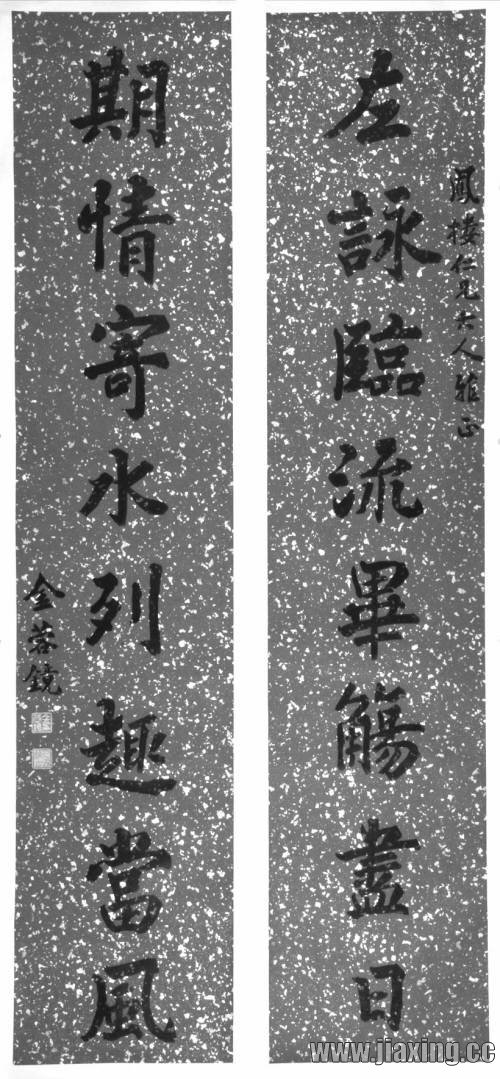 鳳樓仁兄大人雅正
左詠臨流畢觴盡日
期情寄水列趣當風
金蓉鏡
www.jiaxing.cc